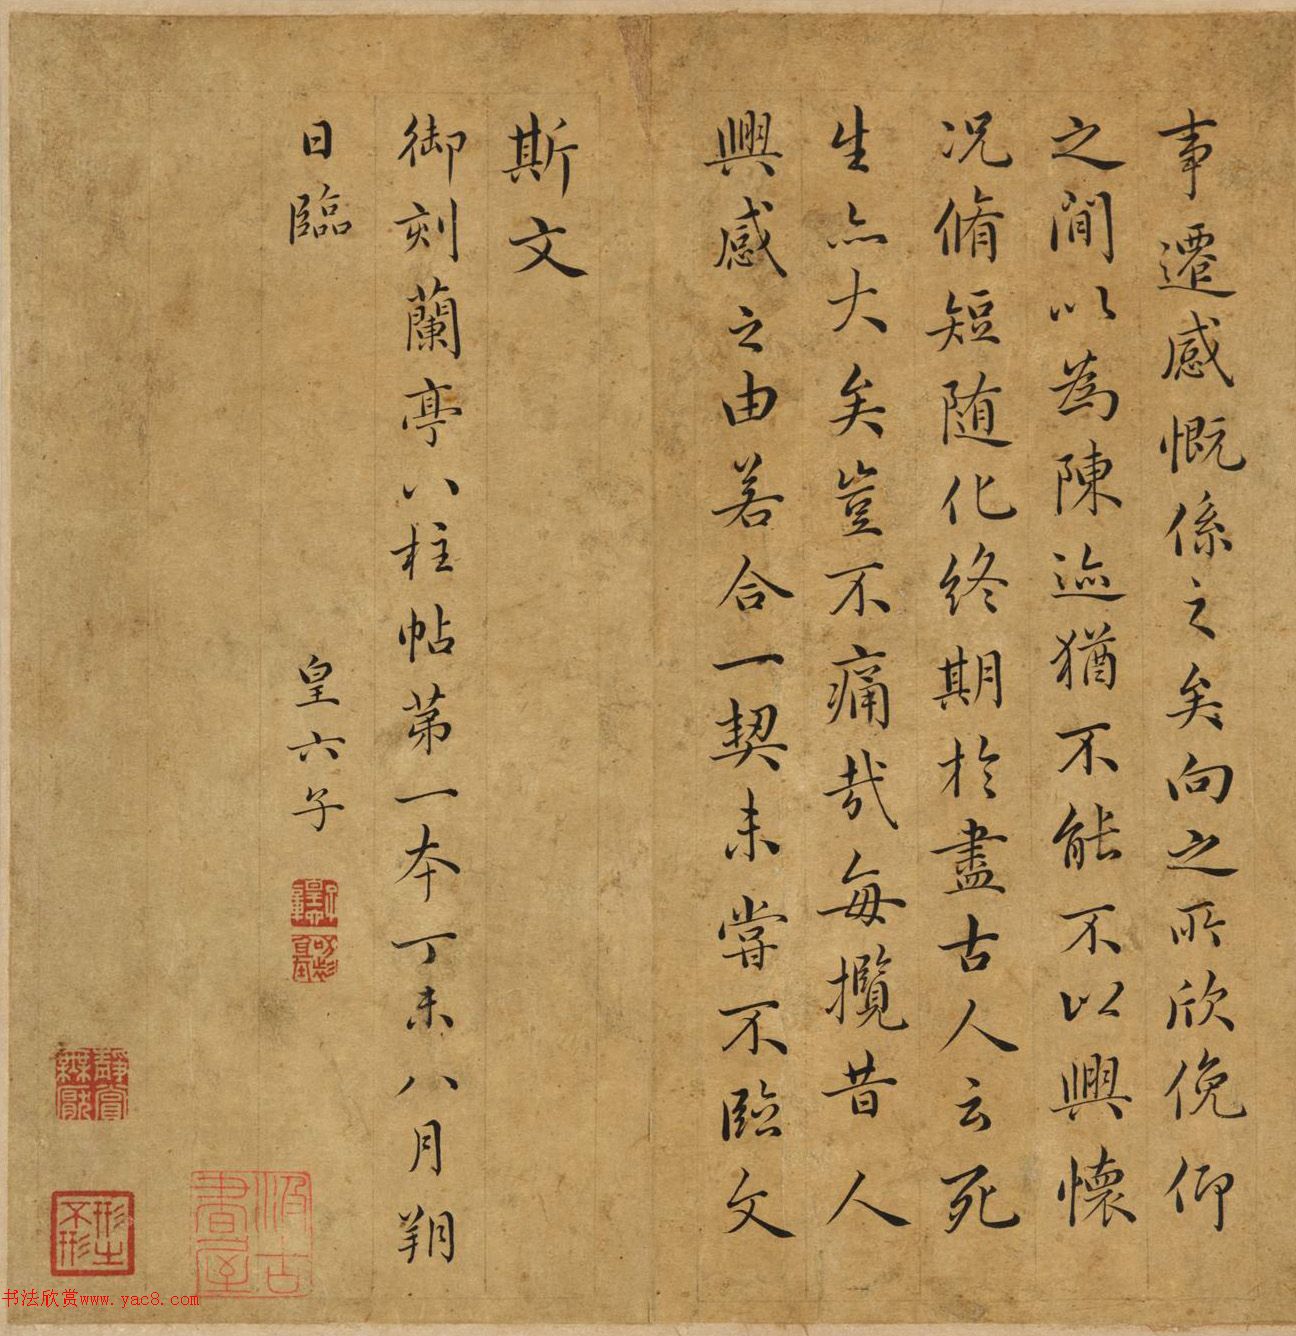 事遷感慨係之矣向之所欣俛仰
之閒以為陳迹猶不能不以興懷
况脩短随化終期於盡古人云死
生亦大矣豈不痛哉每攬昔人
興感之由若合一契未嘗不臨文
斯文
御刻蘭亭八柱帖第一本丁未八月朔
日臨
皇六子
靜賞無厭
形土不形
汲古書屋
书法欣赏www.yac8.com